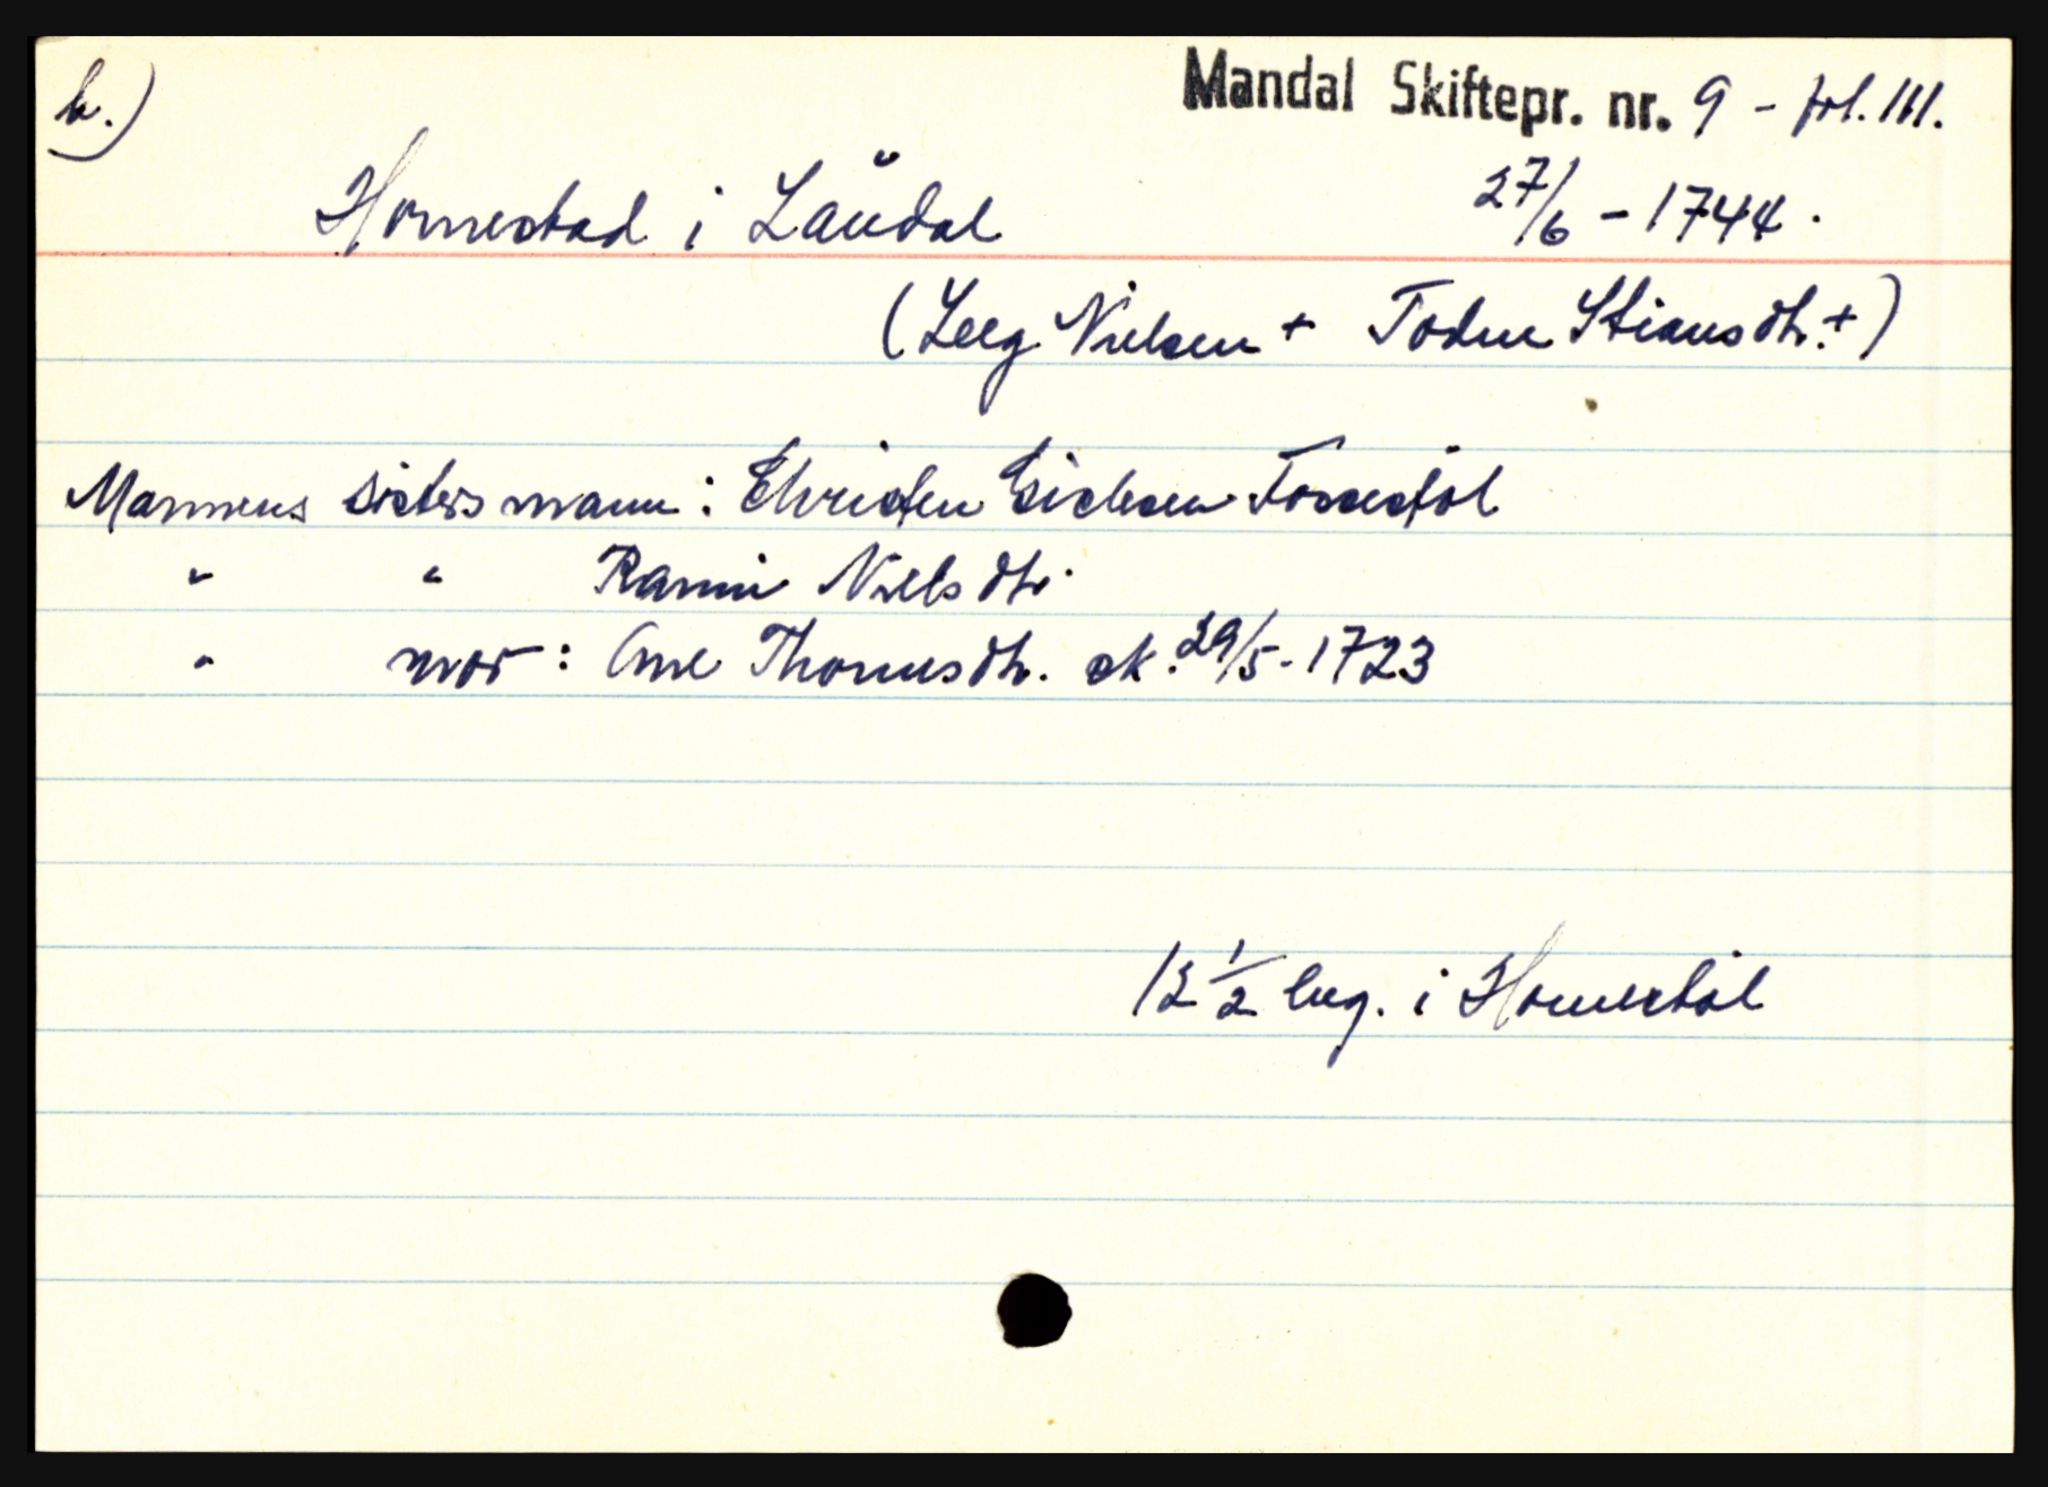 b.)
Mandal Skiftepr. nr. 9 - fol. 111.
Homestad i Laŭdal
27/6 - 1744.
(Leeg Nielsen + Todne Stiansdtr. +)
Mannens sisters mann: Christen Eichsen Fossestøl
" " Ranni Nielsdtr.
" mor: Ane Thomasdtr. sk. 29/5 - 1723
12 1/2 eng. i Homestøl